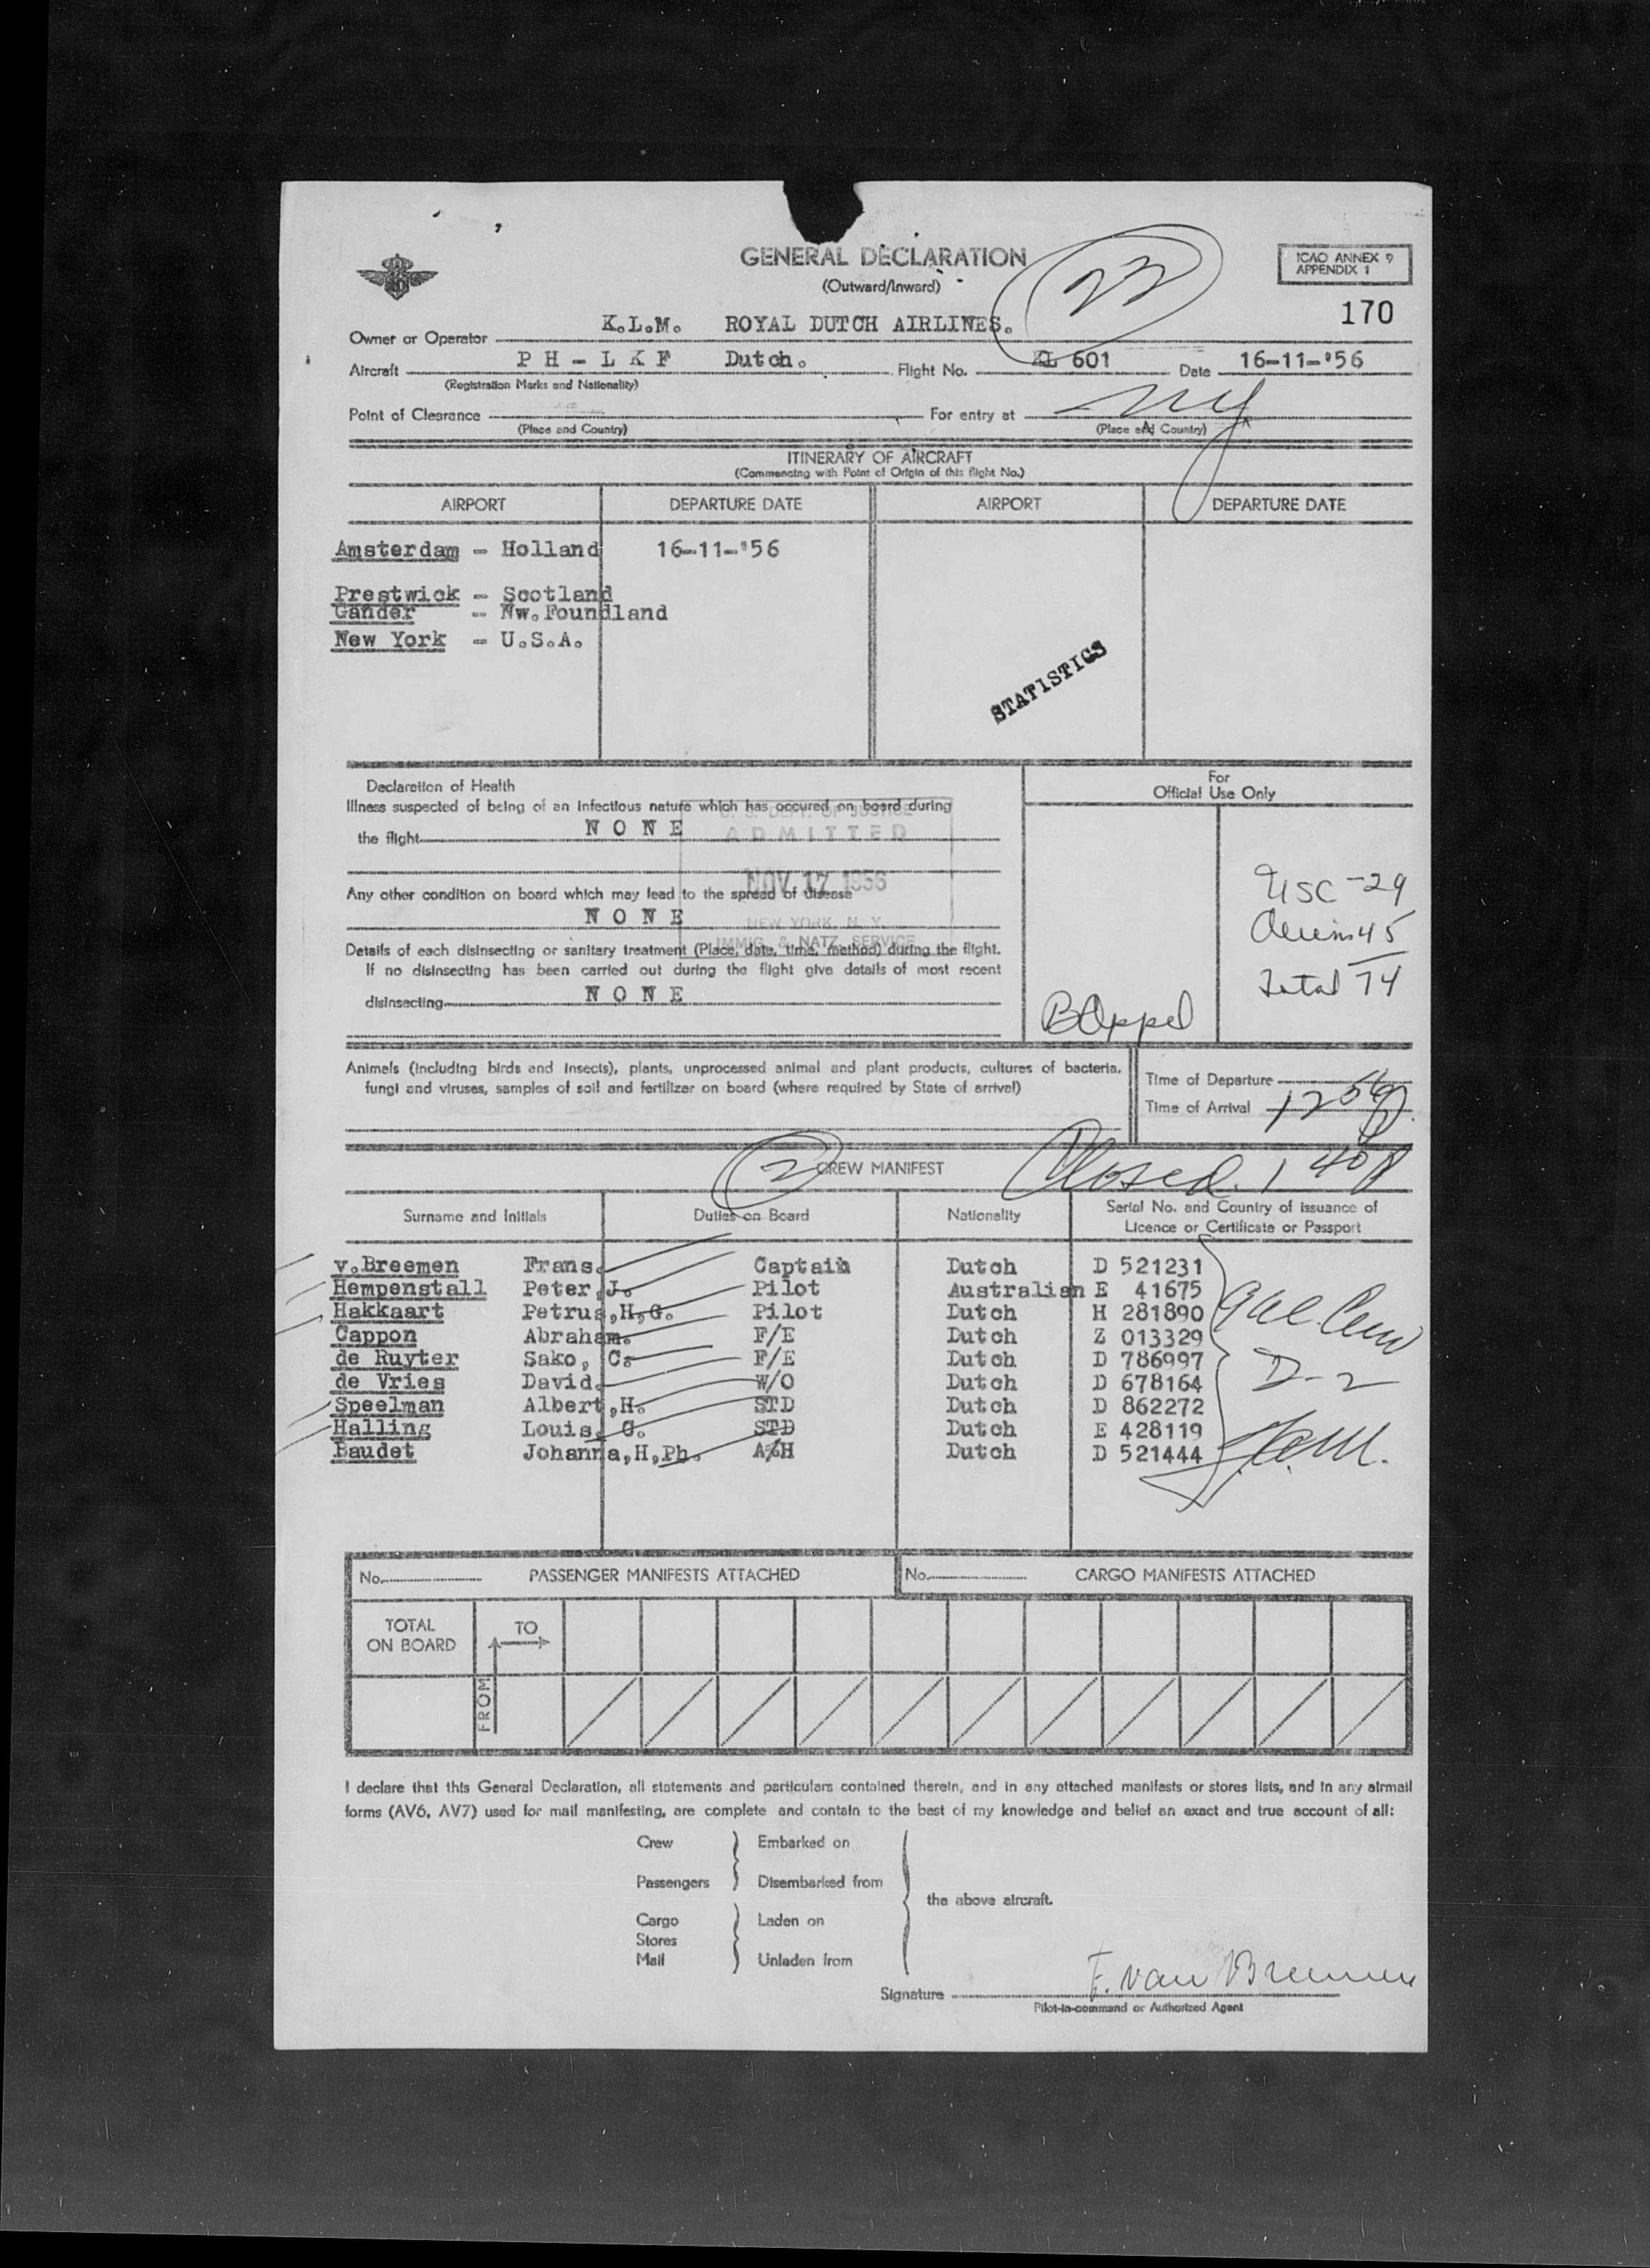 GENERAL DECLARATION
(Outward/Inward)
22
ICAO ANNEX 9
APPENDIX 1
170
Owner or Operator K.L.M. ROYAL DUTCH AIRLINES.
Aircraft PH-LKF Dutch. Flight No. KL 601 Date 16-11-'56
(Registration Marks and Nationality)
Point of Clearance For entry at NY
(Place and Country) (Place and Country)
ITINERARY OF AIRCRAFT
(Commencing with Point of Origin of this flight No.)
AIRPORT DEPARTURE DATE AIRPORT DEPARTURE DATE
Amsterdam - Holland 16-11-'56
Prestwick - Scotland
Gander - Nw.Foundland
New York - U.S.A.
STATISTICS
Declaration of Health
Illness suspected of being of an infectious nature which has occured on board during
the flight NONE
Any other condition on board which may lead to the spread of disease
NONE
Details of each disinsecting or sanitary treatment (Place, date, time, method) during the flight.
If no disinsecting has been carried out during the flight give details of most recent
disinsecting NONE
U. S. DEPT. OF JUSTICE
ADMITTED
NOV 17 1956
NEW YORK, N. Y.
IMMIG. & NATZ. SERVICE
For
Official Use Only
USC -29
Aliens 45
Total 74
B Appel
Animals (including birds and insects), plants, unprocessed animal and plant products, cultures of bacteria,
fungi and viruses, samples of soil and fertilizer on board (where required by State of arrival)
Time of Departure
Time of Arrival 12 56 P.
2 CREW MANIFEST Closed. 1 40 P
Surname and Initials Duties on Board Nationality Serial No. and Country of issuance of
Licence or Certificate or Passport
v.Breemen Frans. Captain Dutch D 521231
Hempenstall Peter,J. Pilot Australian E 41675
Hakkaart Petrus,H,G. Pilot Dutch H 281890
Cappon Abraham. F/E Dutch Z 013329
de Ruyter Sako, C. F/E Dutch D 786997
de Vries David. W/O Dutch D 678164
Speelman Albert,H. STD Dutch D 862272
Halling Louis, C. STD Dutch E 428119
Baudet Johanna,H,Ph. A/H Dutch D 521444
D-2
No. PASSENGER MANIFESTS ATTACHED No. CARGO MANIFESTS ATTACHED
TOTAL
ON BOARD
TO
FROM
I declare that this General Declaration, all statements and particulars contained therein, and in any attached manifests or stores lists, and in any airmail
forms (AV6, AV7) used for mail manifesting, are complete and contain to the best of my knowledge and belief an exact and true account of all:
Crew Embarked on
Passengers Disembarked from
the above aircraft.
Cargo Laden on
Stores
Mail Unladen from
Signature F. van Breemen
Pilot-in-command or Authorized Agent